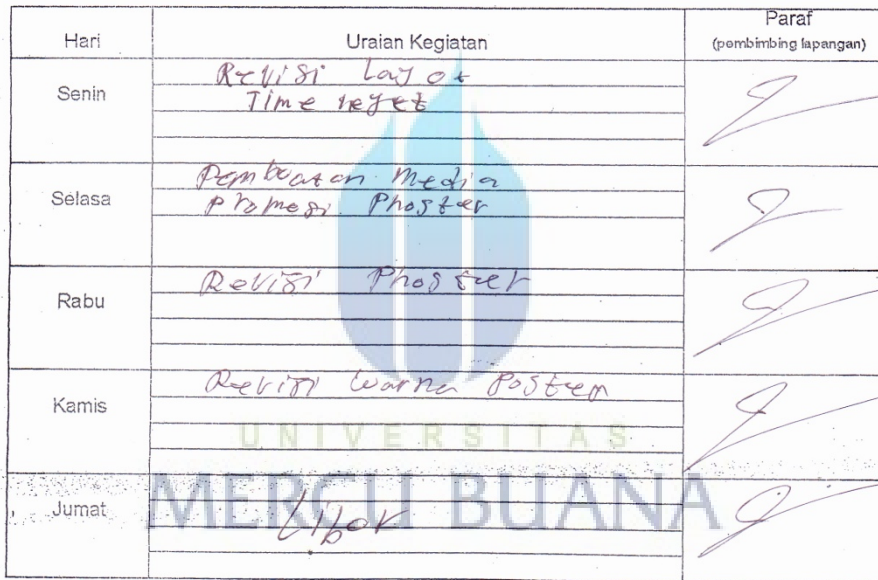 Hari Uraian Kegiatan Paraf
(pembimbing lapangan)
Senin
Revisi Layot
Time
Selasa
Pembuatan Media
Promosi Phoster
Rabu
Revisi Phoster
Kamis
Revisi warna Poster
UNIVERSITAS
MERCU BUANA
Jumat
Libur